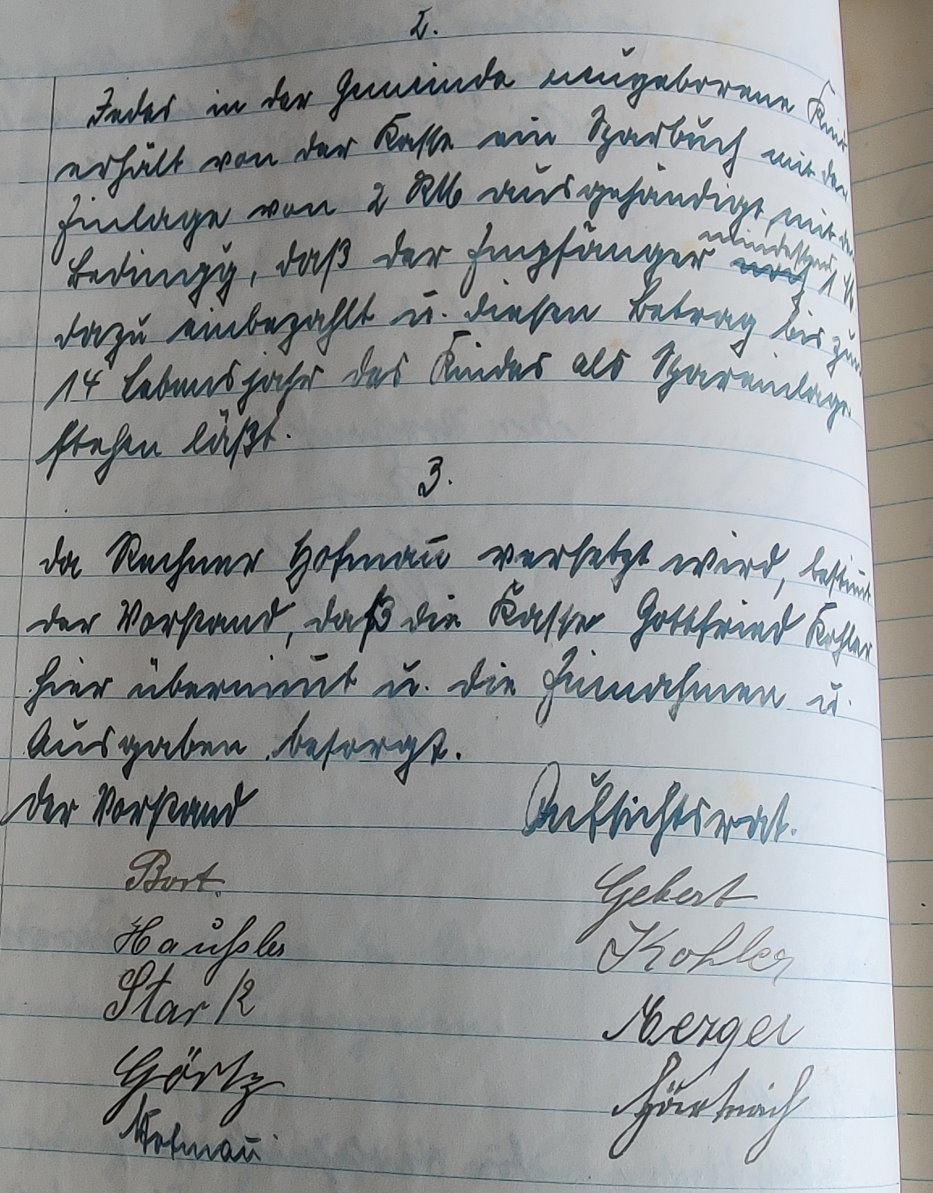 2.
Jedes in der Gemeinde neugeborene Kind
erhält von der Kasse ein Sparbuch mit der
Einlage von 2 RM ausgehändigt, mit der
Bedingg, daß der Empfänger mindestens 1 M
dazu einbezahlt u. diesen Betrag bis zum
14 Lebensjahr des Kindes als Spareinlage
stehen läßt.
3.
da Rechner Hofmau versetzt wird, bestimt
der Vorstand, daß die Kasse Gottfried Kohler
hier übernimt u. die Einnahmen u.
Ausgaben besorgt.
der Vorstand Aufsichtsrat.
Bort. Gebert
Haußler Kohler
Stark Merzel
Görtz